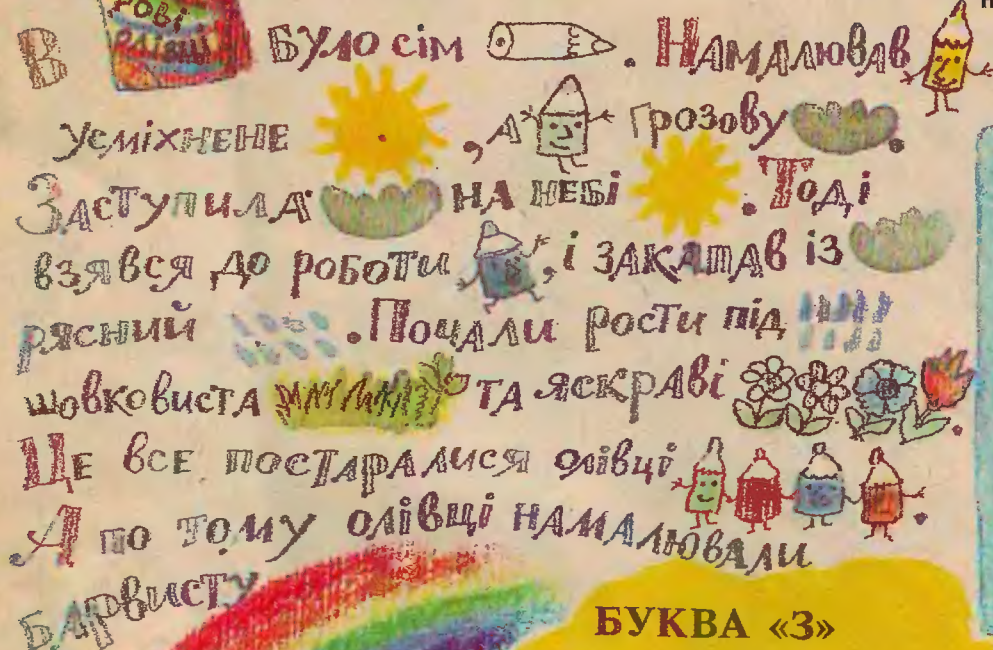 рові
олівці
В було сім . Намалював
усміхнене , а грозову .
Заступила на небі . Тоді
взявся до роботи , і закапав із
рясний . Почали рости під
шовковиста та яскраві .
Це все постаралися олівці .
А по тому олівці намалювали
барвисту
БУКВА «З»